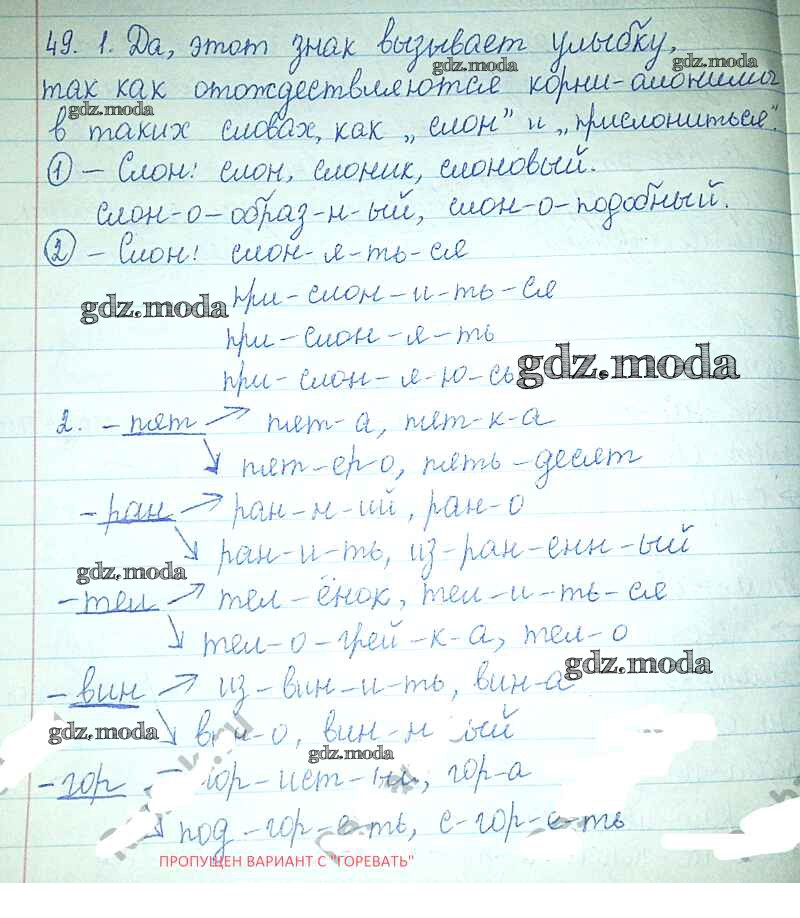 49. 1. Да, этот знак вызывает улыбку,
gdz.moda gdz.moda
так как отождествляются корни-омонимы
gdz.moda
в таких словах, как „слон" и „прислониться".
① – Слон: слон, слоник, слоновый.
слон-о-образ-н-ый, слон-о-подобный.
② – Слон: слон-я-ть-ся
gdz.moda при-слон-и-ть-ся
при-слон-я-ть
при-слон-я-ю-сь gdz.moda
2. -пят → пят-а, пят-к-а
пят-ер-о, пять-десят
-ран → ран-н-ий, ран-о
ран-и-ть, из-ран-енн-ый
gdz.moda
-тел → тел-ёнок, тел-и-ть-ся
тел-о-грей-к-а, тел-о
gdz.moda
-вин → из-вин-и-ть, вин-а
gdz.moda вин-о, вин-н ый
gdz.moda
-гор гор-ист-ый, гор-а
под-гор-е-ть, с-гор-е-ть
ПРОПУЩЕН ВАРИАНТ С "ГОРЕВАТЬ"